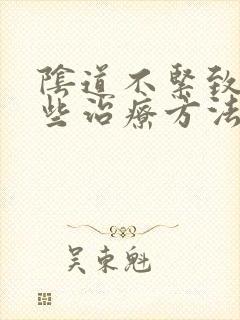 陰道不緊致
些治療方法
吴東魁